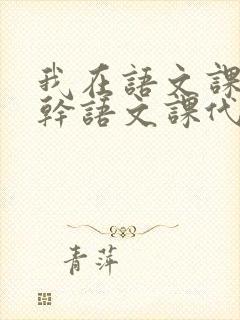 我在語文課
幹語文課代
青萍